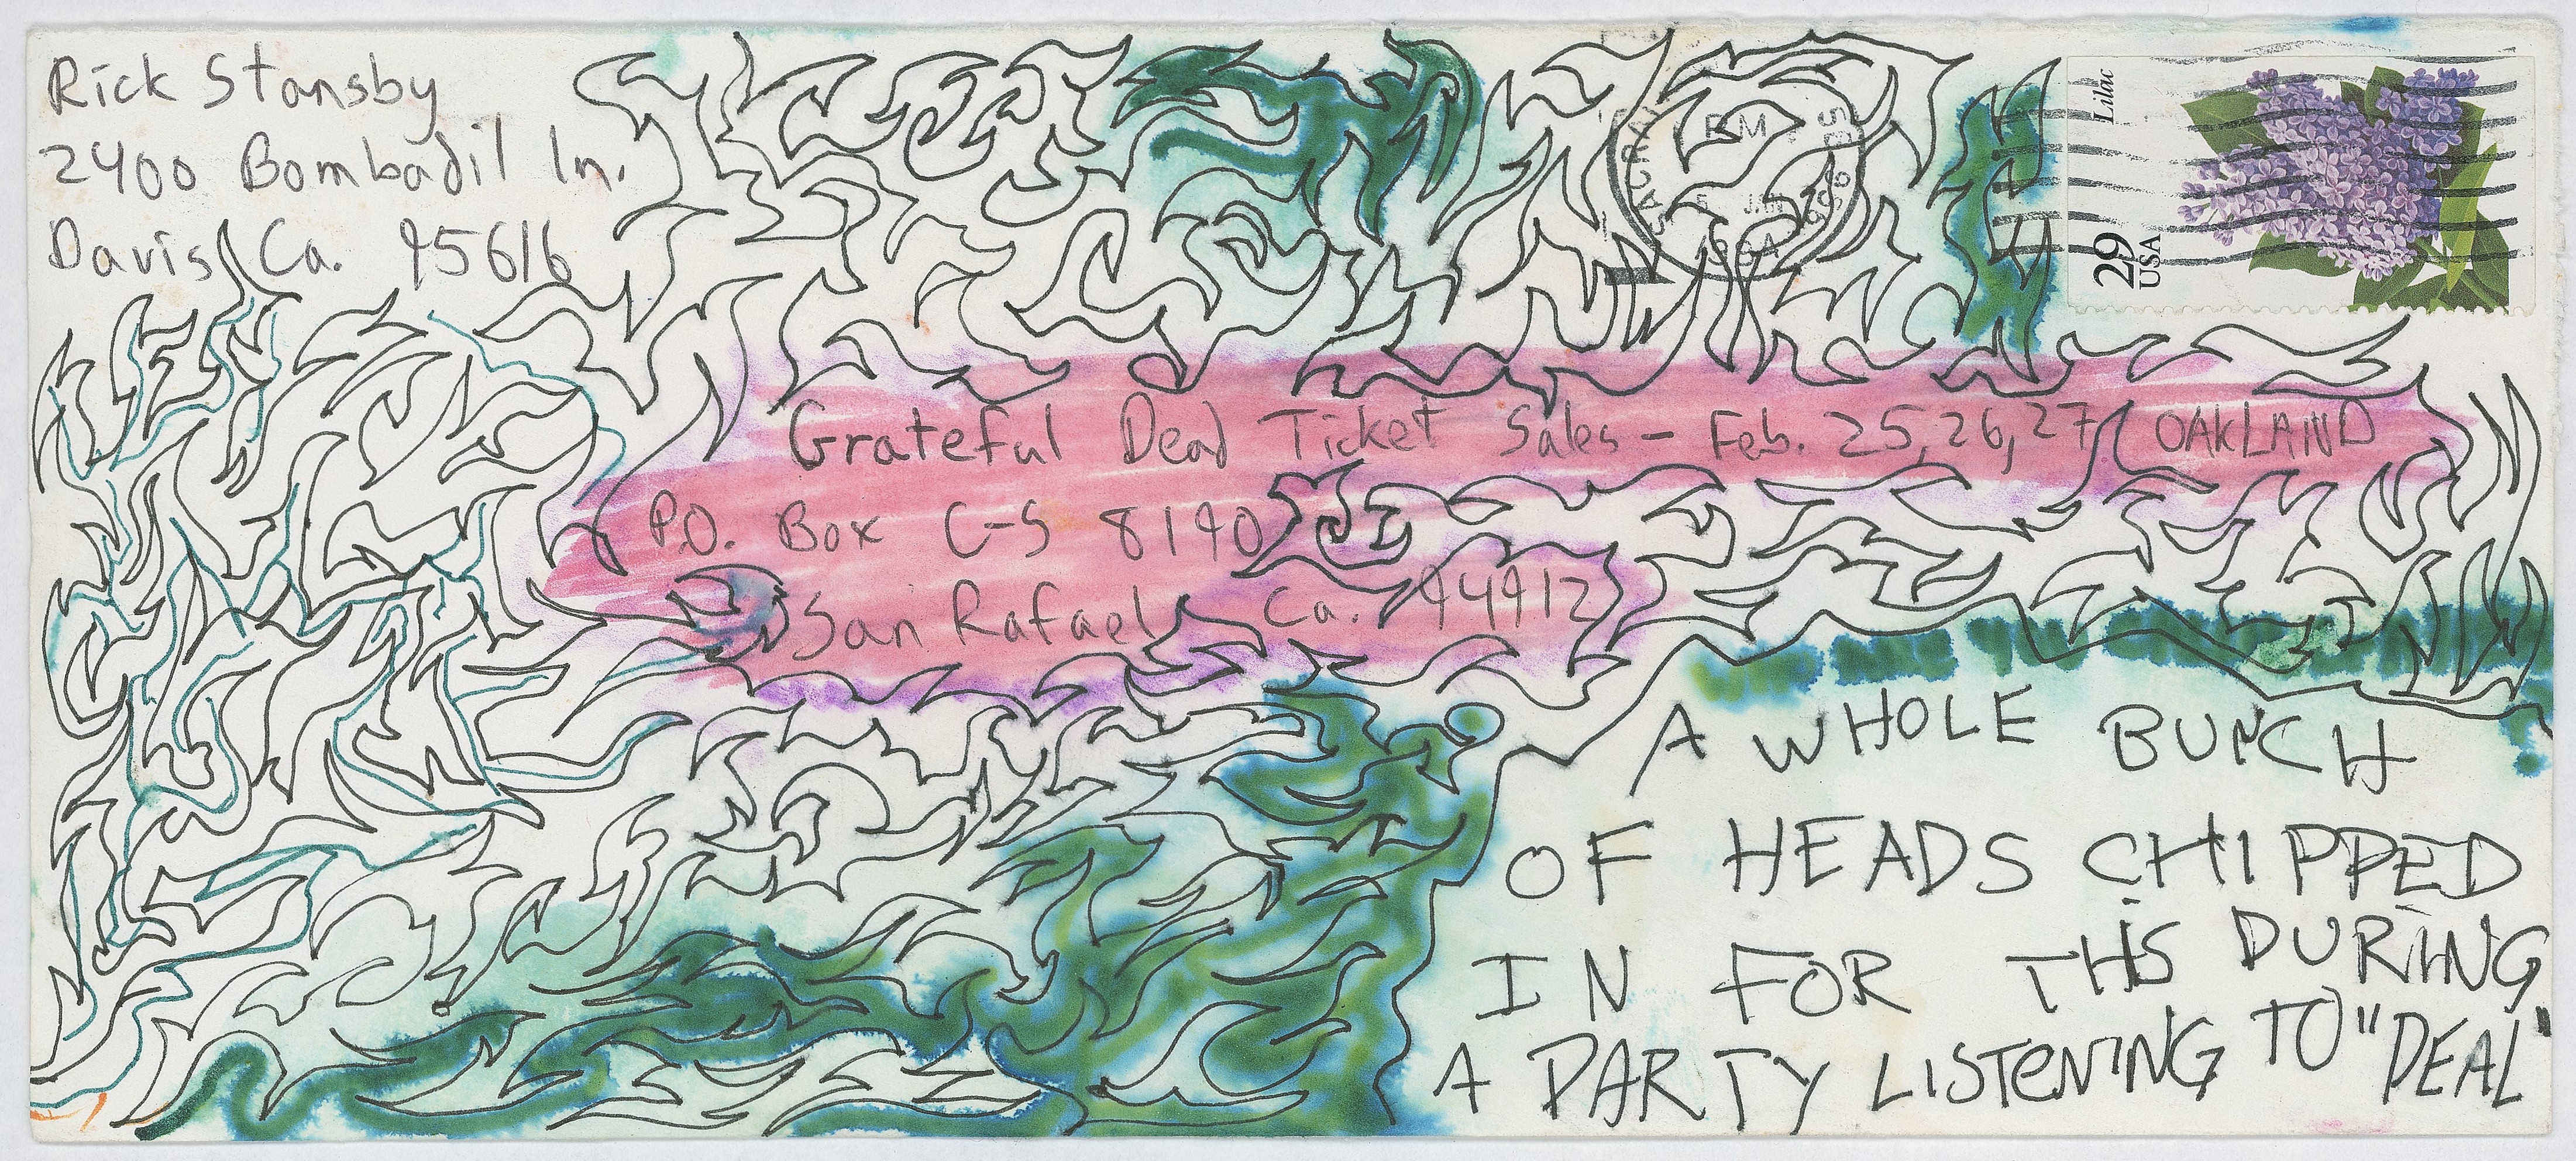 Rick Stansby
2400 Bombadil ln.
Davis, Ca. 95616
PM
5 JAN
1994
Lilac
29
USA
Grateful Dead Ticket Sales - Feb. 25,26,27, OAKLAND
P.O. Box C-S 8190
San Rafael, Ca. 94912
A WHOLE BUNCH
OF HEADS CHIPPED
IN FOR THIS DURING
A PARTY LISTENING TO "DEAL"